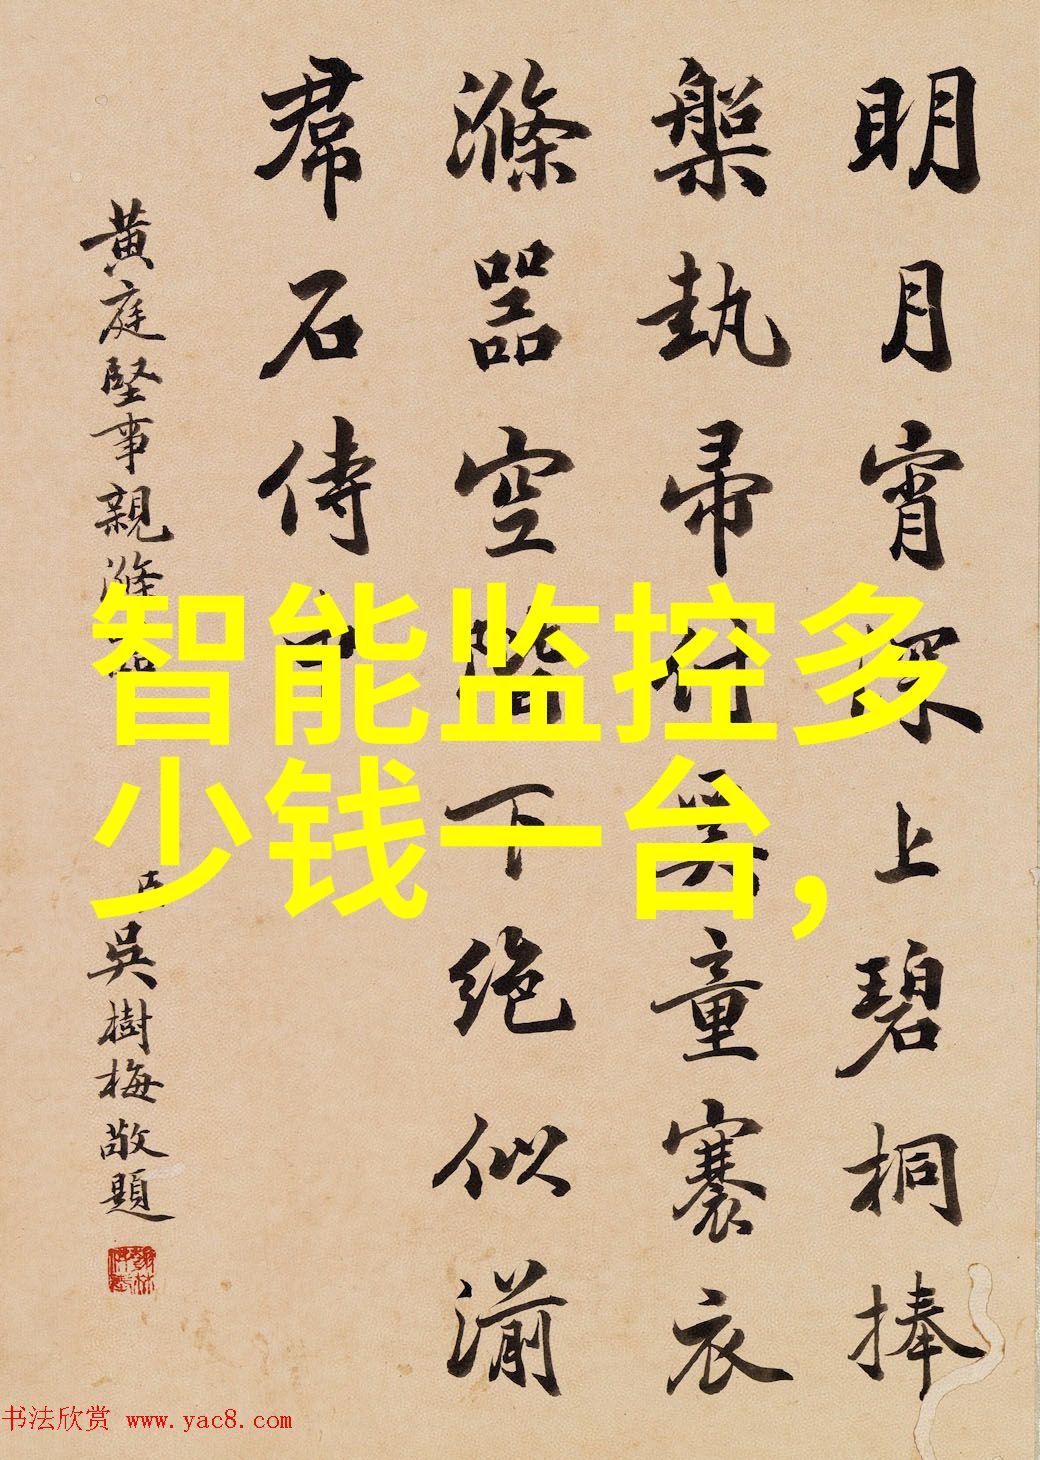 明月宵深上碧桐捧
槃執帚付奚童褰衣
滌器空階下絶似湔
帬石侍中
黃庭堅事親滌器
臣吳樹梅敬題
智能监控多
少钱一台,
书法欣赏 www.yac8.com